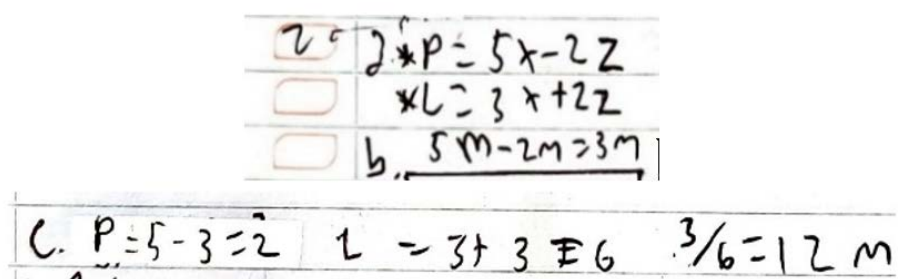 2. a. *P = 5x - 2z
*L = 3x + 2z
b. 5m - 2m = 3m
C. P = 5 - 3 = 2 L = 3 + 3 = 6 3/6 = 12 m